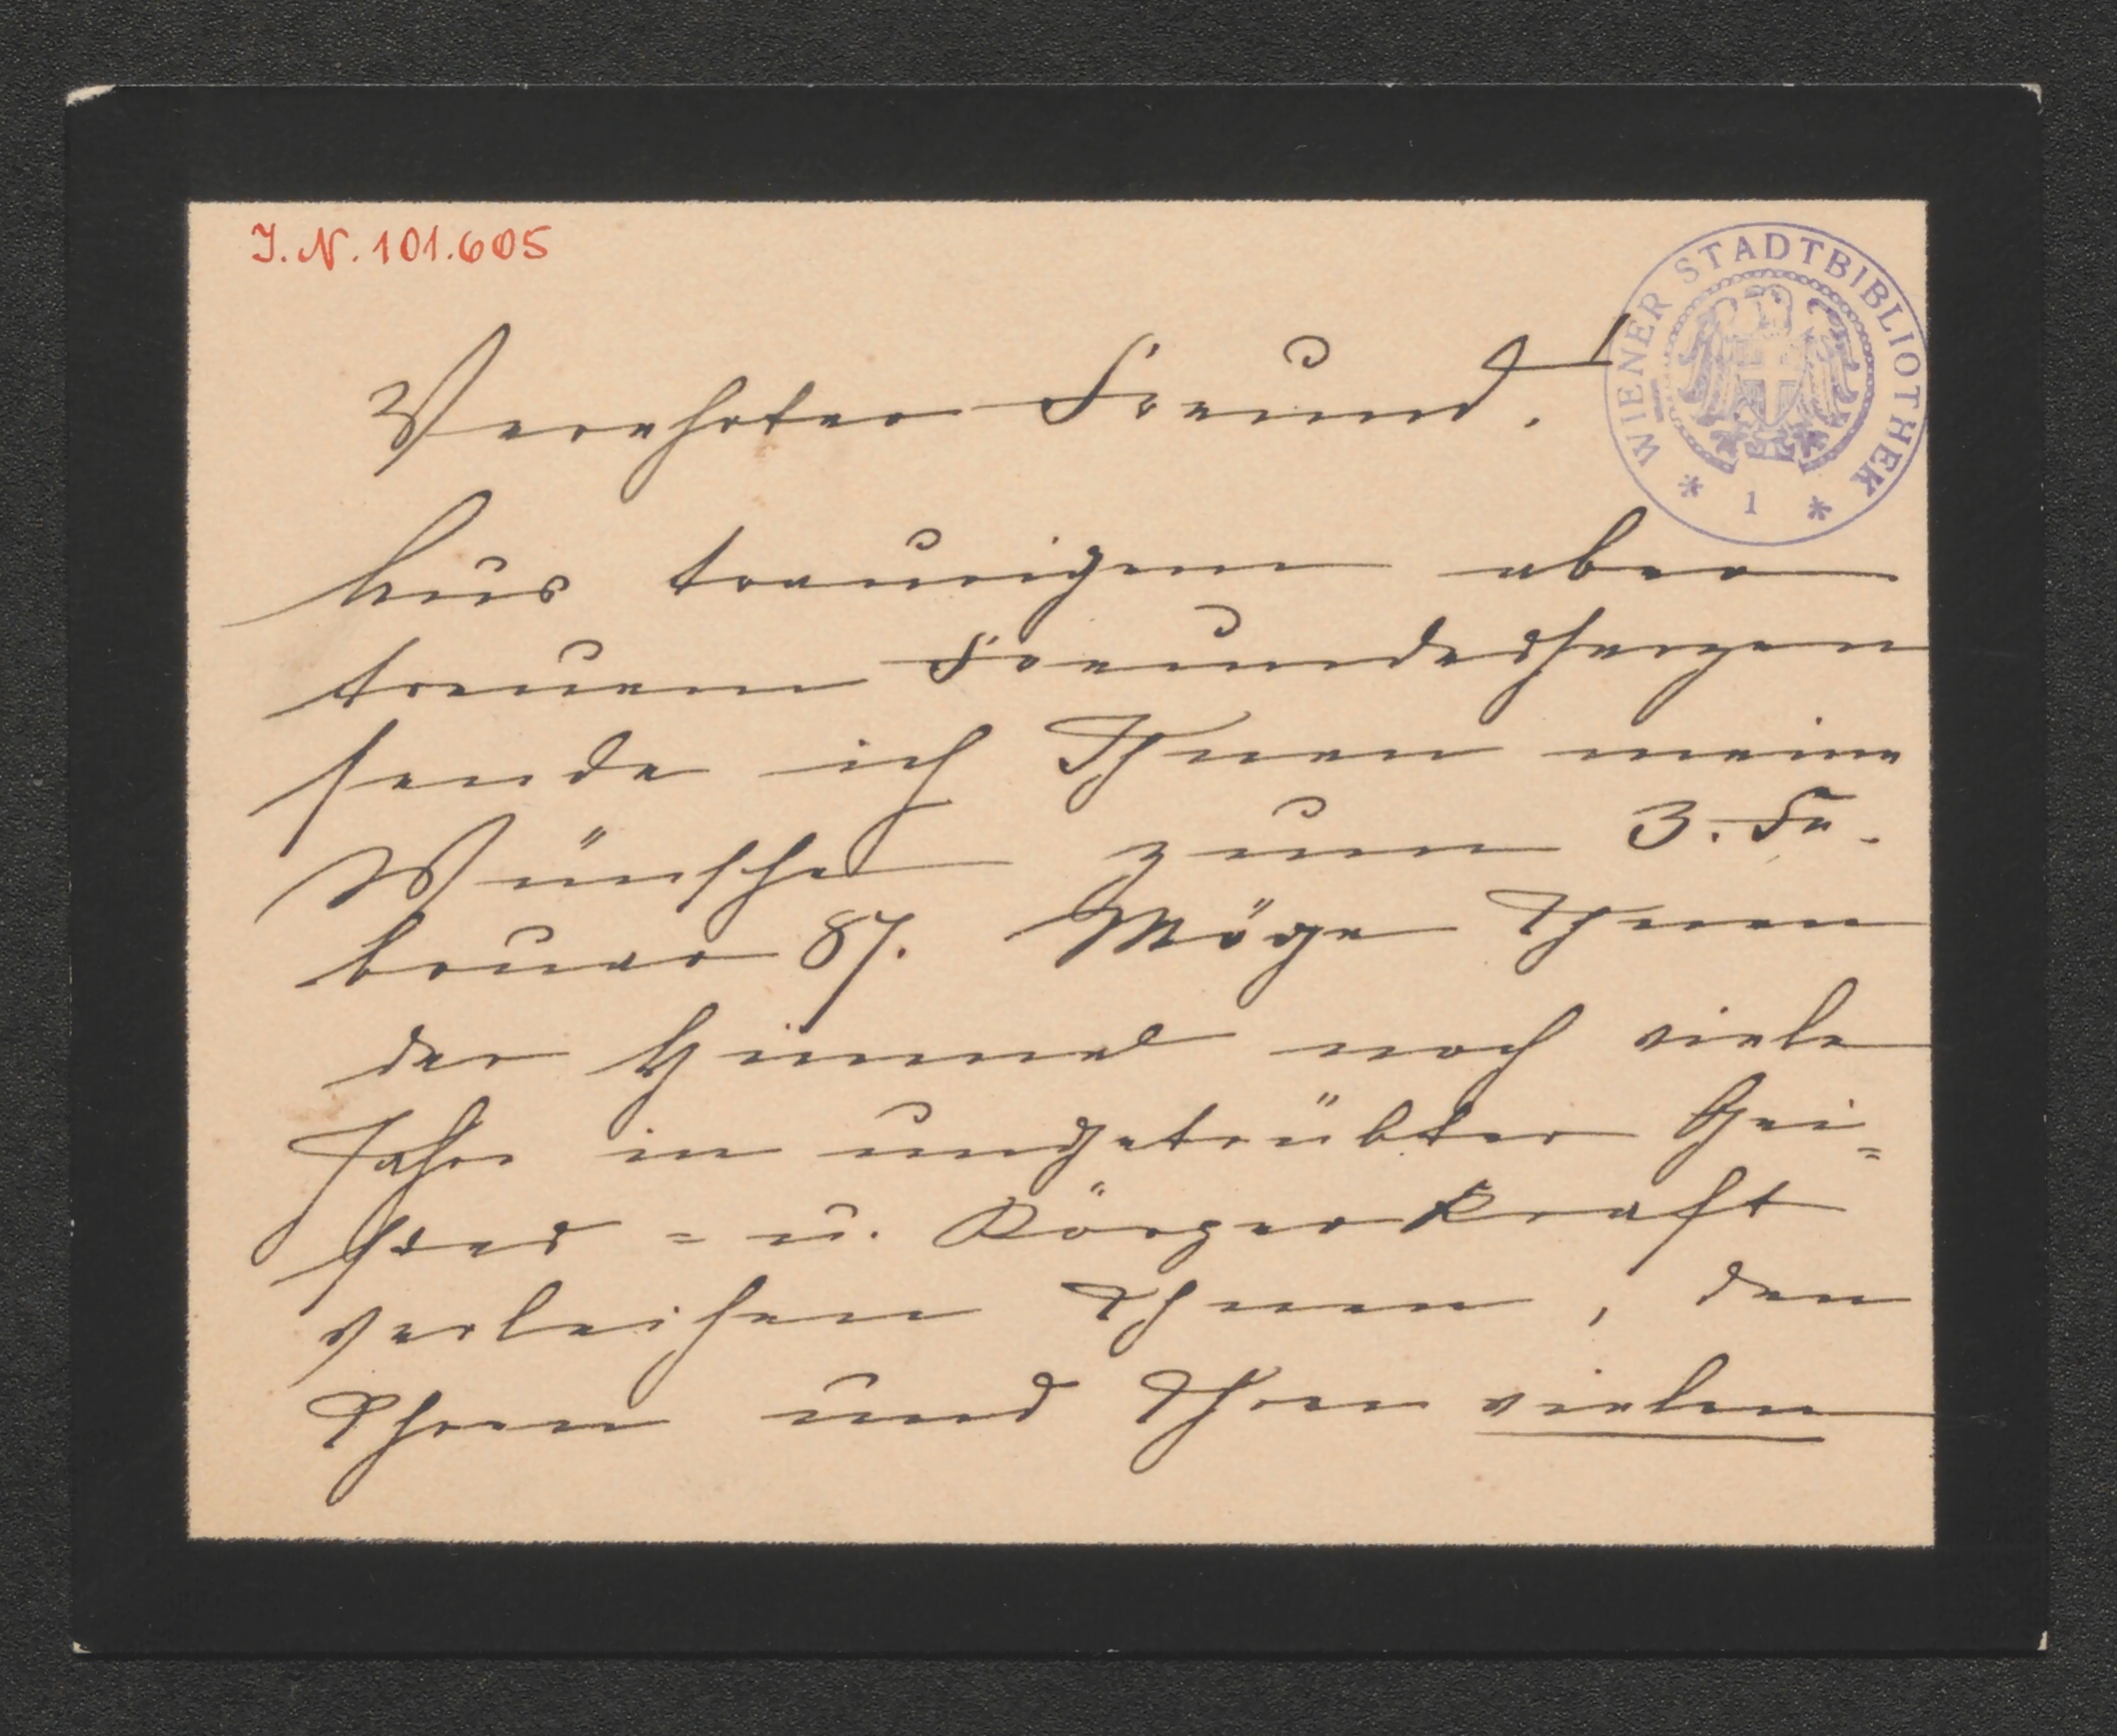 I. N. 101.605
WIENER STADTBIBLIOTHEK
* 1 *
Verehrter Freund!
Aus traurigem aber
treuem Freundesherzen
sende ich Ihnen meine
Wünsche zum 3. Fe-
bruar 87. Möge Ihnen
der Himmel noch viele
Jahre in ungetrübter Gei=
stes= u. Körperkraft
verleihen Ihnen, den
Ihren und Ihren vielen